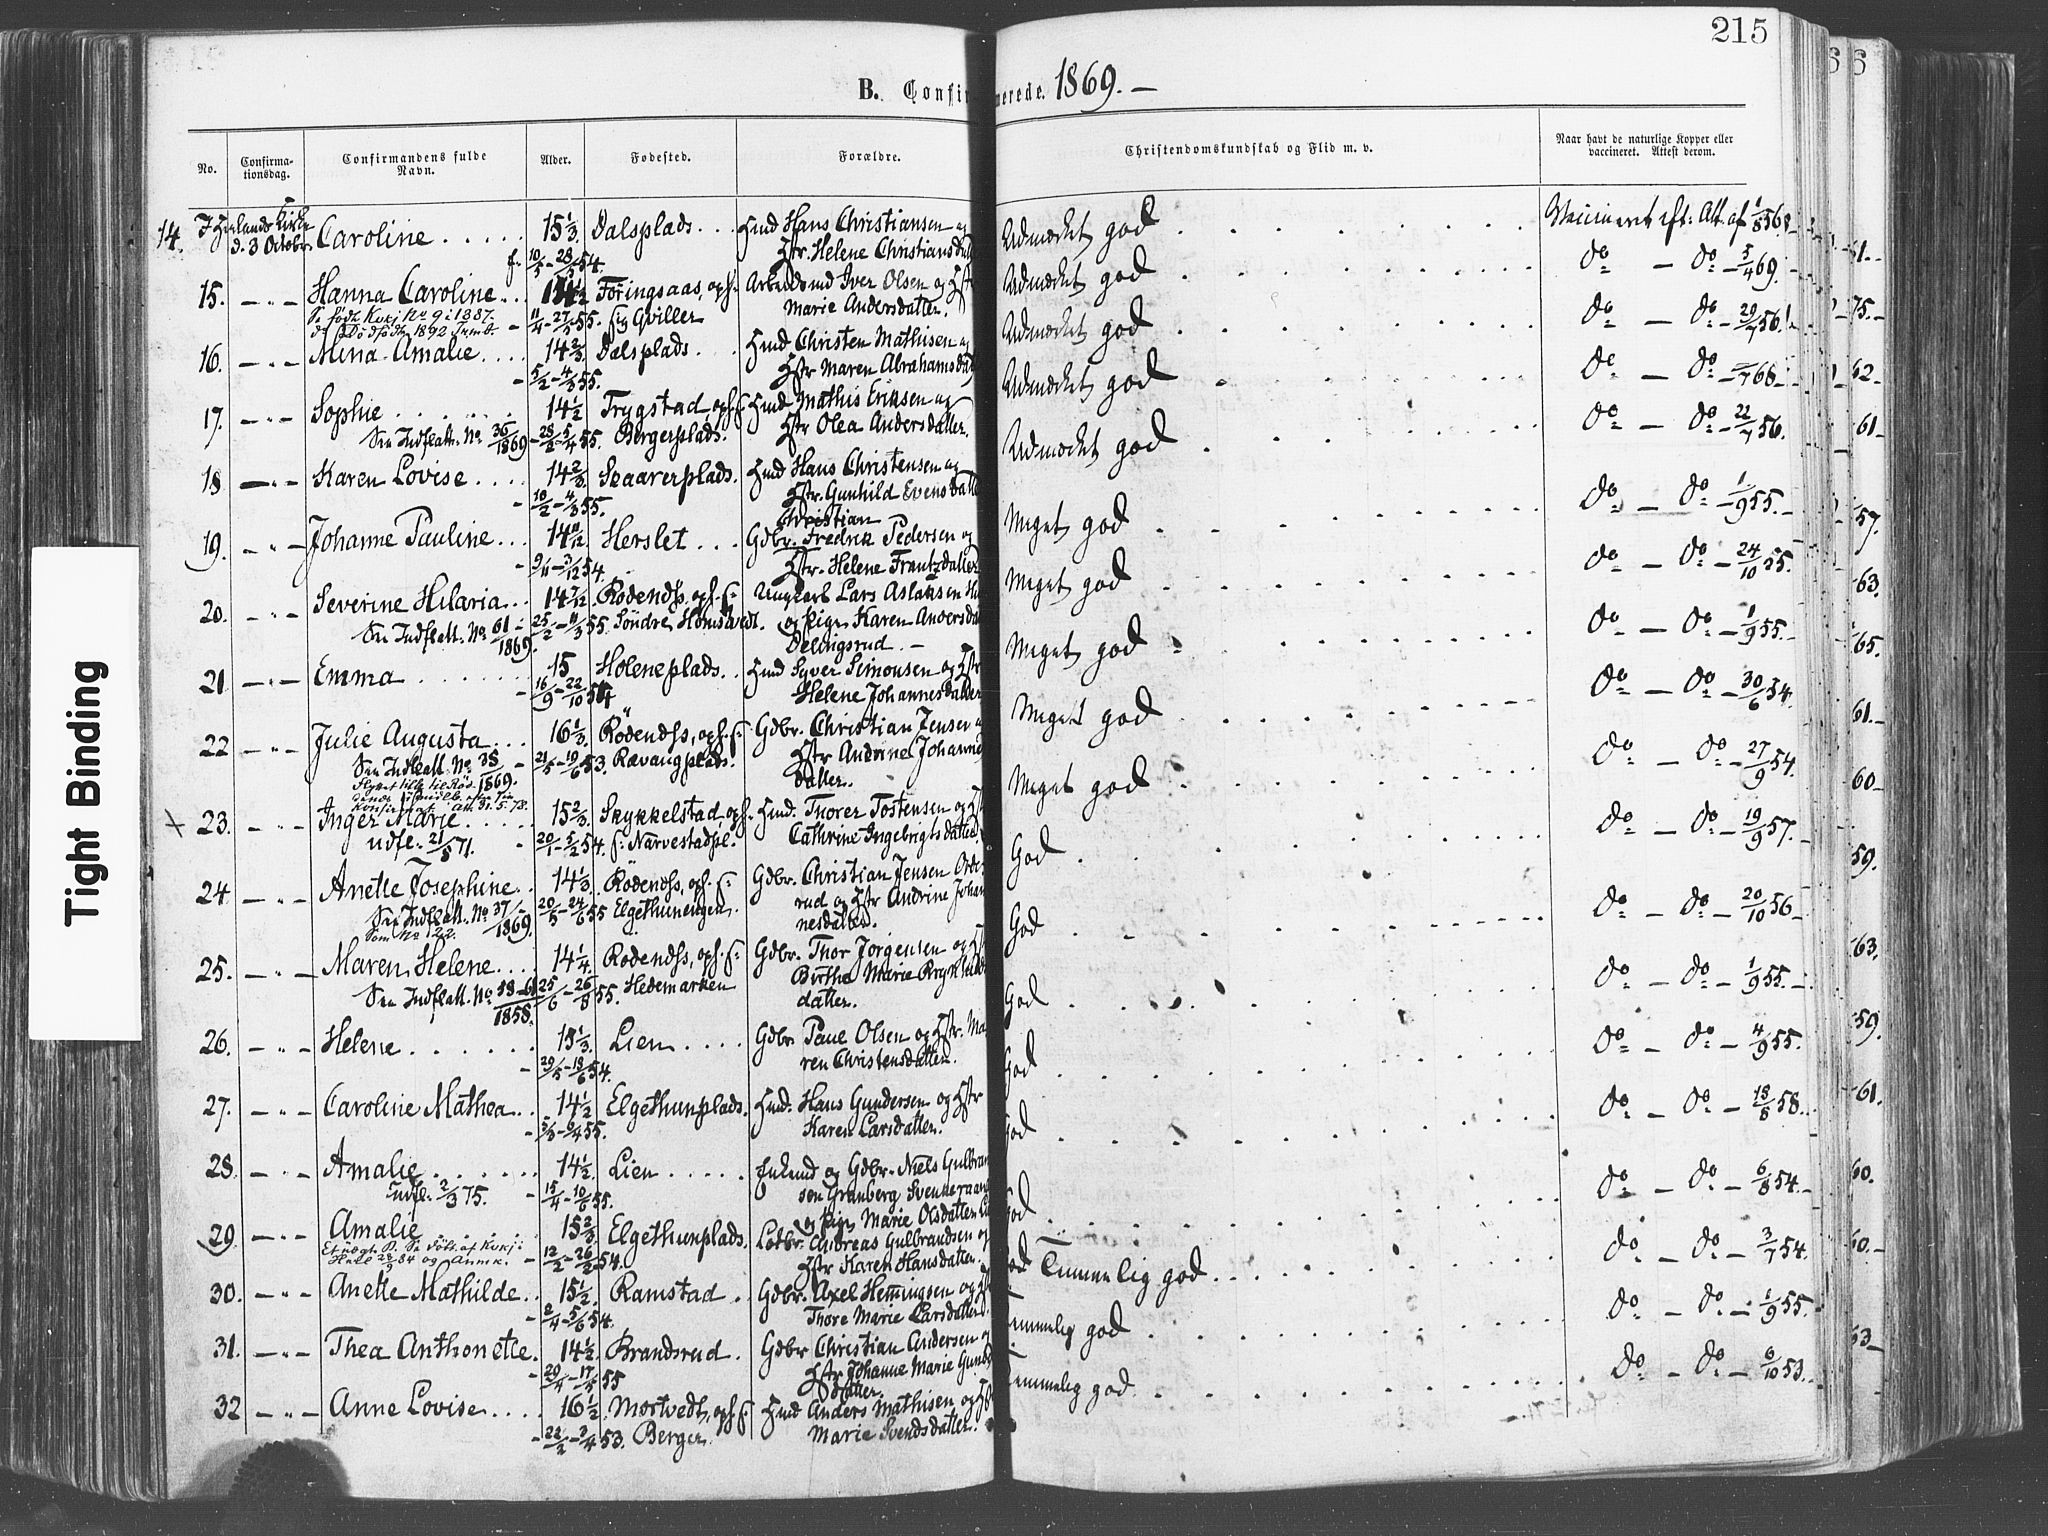 215
B. Confirmerede. 1869. —
No.
Confirma-
tionsdag.
Confirmandens fulde
Navn.
Alder.
Fødested.
Forældre.
Christendomskundskab og Flid m. v.
Naar havt de naturlige Kopper eller
vaccineret. Attest derom.
14. Kirke d. 3 October Caroline . . . . . 15 1/3 Dalsplads . . . Hmd Hans Christiansen og Udmærket god . . . Vaccineret eft: Att. af
f. 10/5 - 28/5 54. Hstr. Helene
15. — " — Hanna Caroline . . . 14 1/2 Føringsaas, oph. Arbeidsmd Iver Olsen og Hstr Udmærket god . . . do — do — 5/4 69.
11/4 - 27/5 55. Marie Andersdatter.
16. — " — Mina Amalie . . . . 14 2/3 Dalsplads. Hmd Christen Mathisen og Udmærket god . . . do — do — 29/7 56.
- 5/2 - 4/3 55. Hstr Maren
17. — " — Sophie . . . . . . 14 1/2 Trygstad, oph. f. Hmd Mathis Eriksen og Udmærket god . . . do — do
Se Indflatt. No 36/1869 - 28/2 - 5/4 55. Bergerplads. Hstr Olea Andersdatter.
18 — " — Karen Lovise . . . . 14 2/3 Skaarerplads. Hmd Hans Christensen og Udmærket god . . . do — do — 22/7 56.
- 10/2 - 4/3 55. Hstr. Gunhild
Christian
19. — " — Johanne Pauline . . . 14 Herslet . . . Gdbr. Fredrik Pedersen og Meget god . . . do — do — 1/9 55.
- 9/11 - 3/12 54. Hstr. Helene Frantzdatter
20. — " — Severine Hilaria . . 14 7/12 Rødenæs, oph. f: Ungkarl Lars Aslaksen Meget god . . . do — do — 24/10 55.
Se Indflatt. No 61/1869. 25/2 - 11/3 55. Søndre og Pige Karen
21 — " — Emma . . . . . . 15 Holeneplads . . Hmd Syver Simonsen og Hstr Meget god . . . do — do — 1/9 55.
- 16/9 - 22/10 54 Helene Johannesdatter
22 — " — Julie Augusta . . . 16 1/3 Rødenæs, oph. f: Gdbr. Christian Jensen Meget god . . . do — do — 30/6 54.
Se Indflatt. No 38/1869. 21/5 - 19/6 53. Hstr Andrine
datter.
23. — " — Inger Marie . . . . 15 2/3 Skykkelstad, oph. Hmd. Thorer Tostensen og Meget god . . . do — do — 27/9 54.
udfl. 21/5 71. - 20/1 - 5/2 54. f: Narvestadpl. Cathrine Ingebrigtsdatter.
24 — " — Anette Josephine . . 14 1/3 Rødenæs, oph. f: Gdbr. Christian Jensen God . . . do — do — 19/9 57.
Se Indflatt. No 37/1869. 20/5 - 24/6 55 Elgethunengen. rud og Hstr Andrine Johan
Som No 22. nesdatter.
25. — " — Maren Helene . . . . 14 1/4 Rødenæs, oph. f: Gdbr. Thor Jørgensen og God . . . do — do — 20/10 56
Se Indflatt. No 1858. 25/6 - 26/8 55. Hedemarken Birthe Marie
datter.
26. — " — Helene . . . . . . 15 1/3 Lien . . . . Gdbr. Poul Olsen og Hstr. Ma God . . . do — do — 1/9 55.
- 29/5 - 18/6 54. ren Christensdatter.
27. — " — Caroline Mathea . . 14 1/2 Elgethunplads. Hmd. Hans Gundersen og Hstr God . . . do — do — 4/9 55.
- 3/3 - 6/4 55. Karen Larsdatter.
28. — " — Amalie . . . . . . 14 1/2 Lien . . . . . Enkemd og Gdbr. Niels Gulbran God . . . do — do — 18/8 58.
udfl. 2/3 75. - 15/4 - 10/6 55. sen Granberg
og Pige Marie Olsdatter
29 — " — Amalie . . . . . 15 2/3 Elgethunplads. Andreas Gulbrandsen og God . . . do — do — 6/8 54.
- 12/2 - 26/2 54. Hstr Karen Hansdatter.
30. — " — Anette Mathilde . . 15 1/2 Ramstad . Gdbr. Axel Hemingsen og Temmelig god . . . do — do — 3/7 54.
2/4 - 5/6 54. Thore Marie Larsdatter.
31. — " — Thea Anthonette . 14 1/2 Brandsrud . Gdbr Christian Andersen emmelig god . . . do — do — 1/9 55.
- 29/4 - 17/5 55 Hstr Johanne Marie
datter.
32 — " — Anne Lovise . . . . 16 1/2 Mortvedt, oph. f: Hmd Anders Mathisen og emmelig god . . . do — do — 6/10 53.
- 22/2 - 3/4 53. Berger. Marie Svendsdatter.
Tight Binding